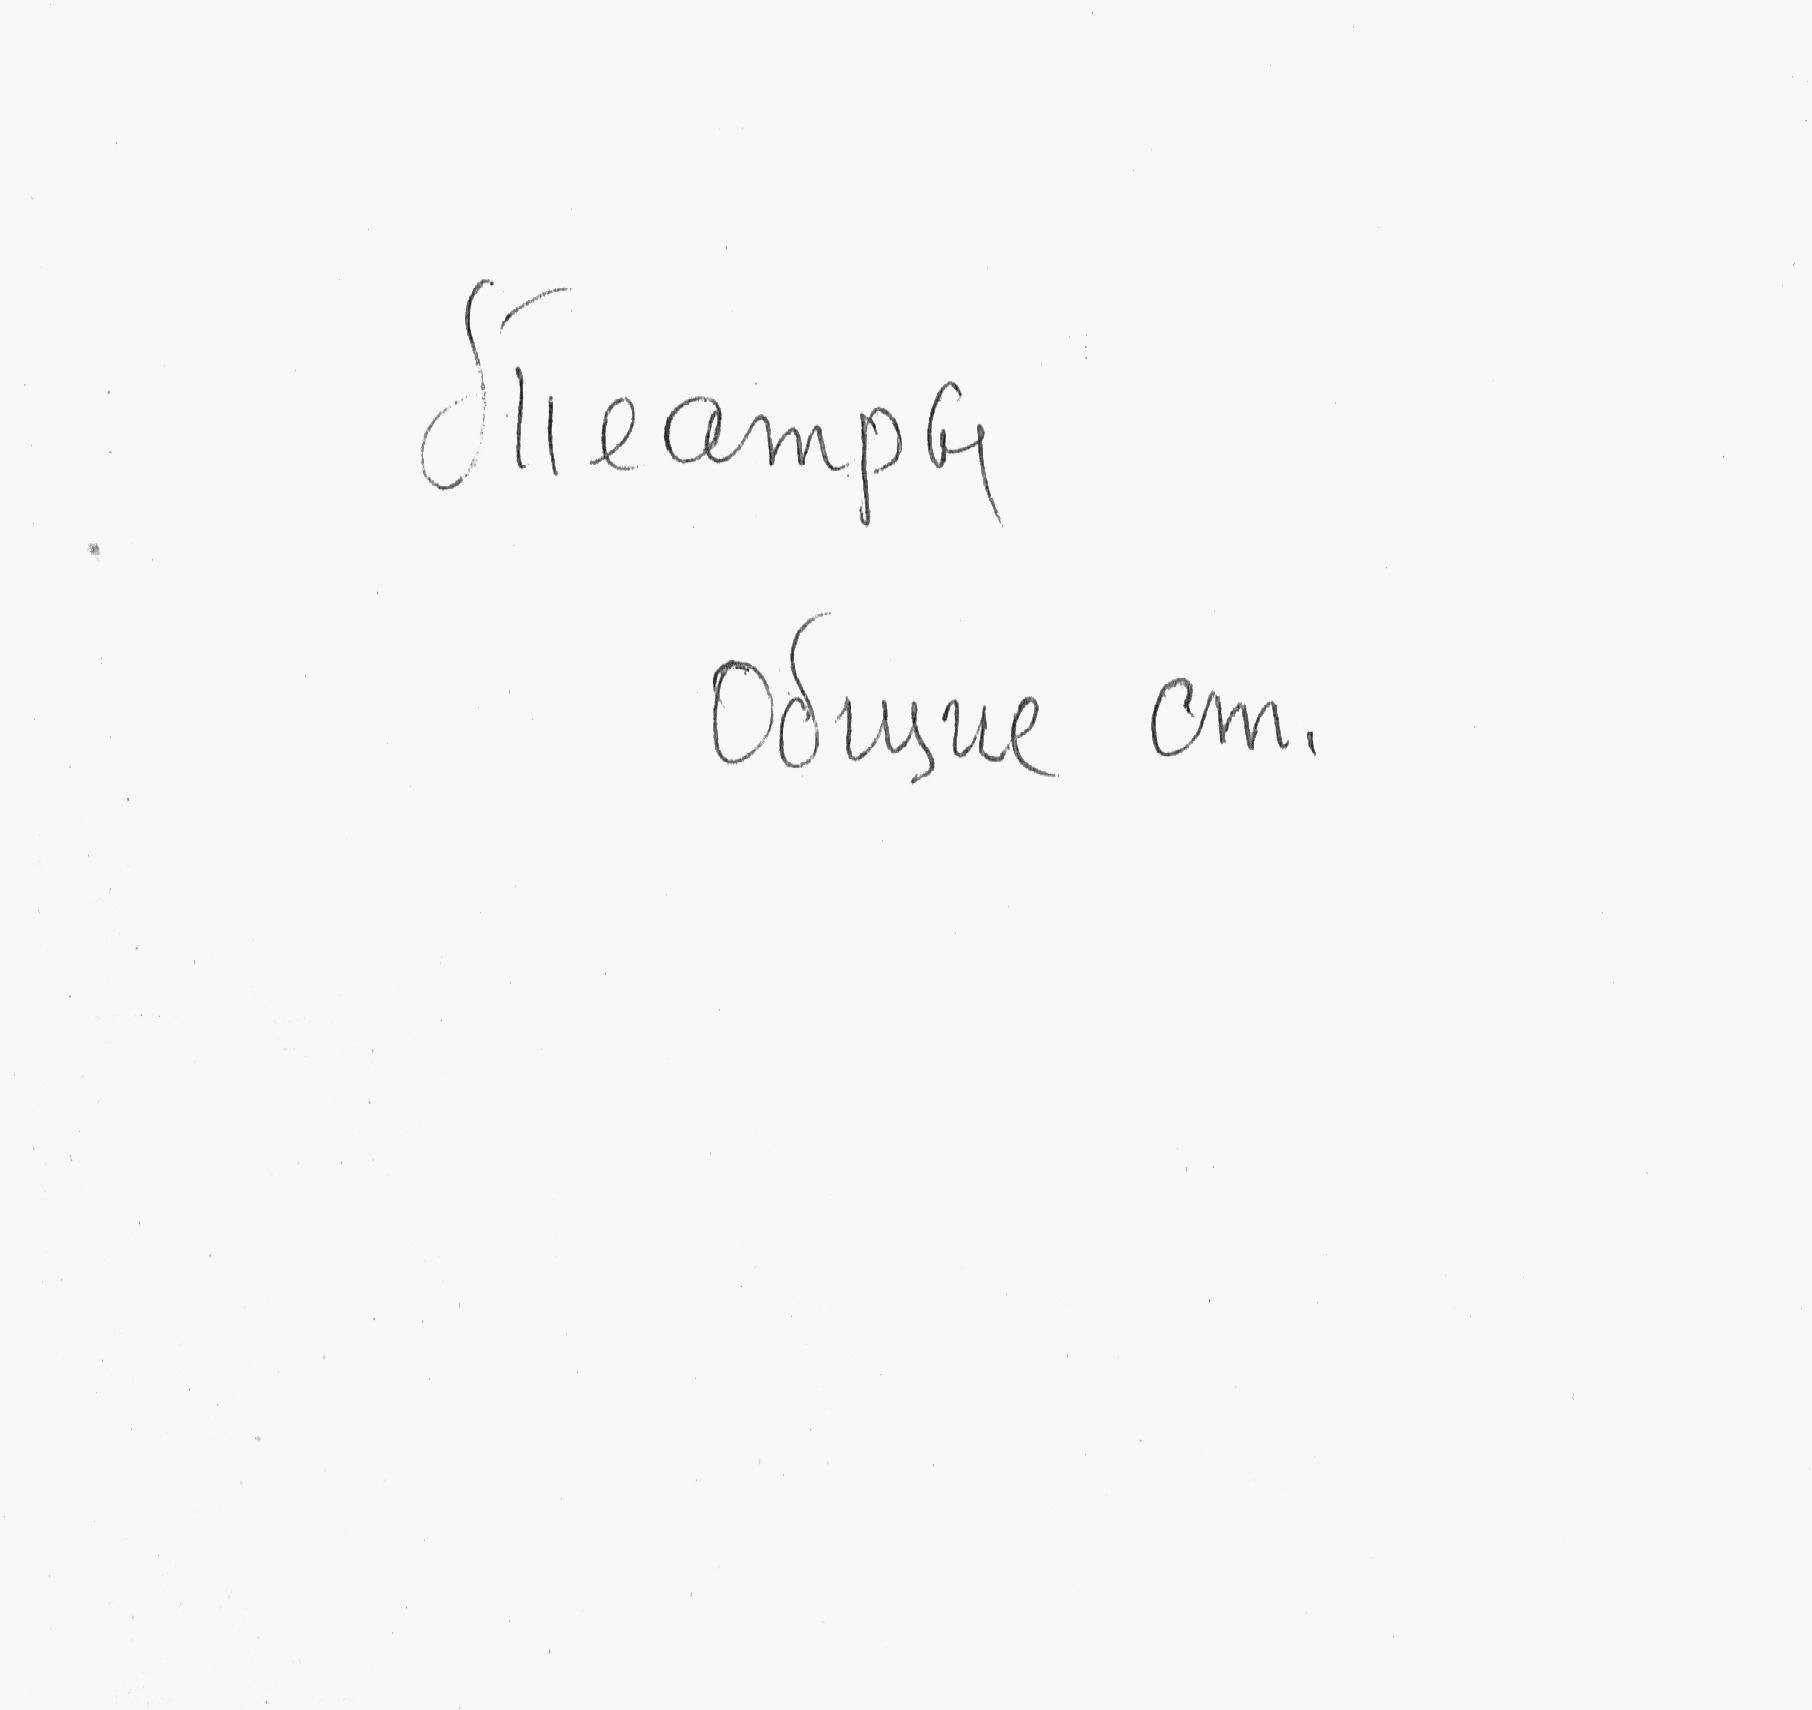 Театры
Общие ст.